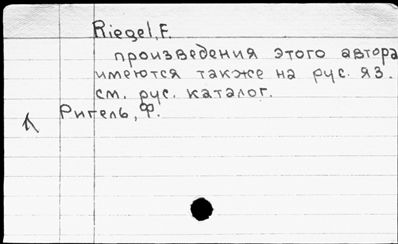 Riegel, F.
произведения этого автора
имеются также на рус. яз.
см. рус. каталог.
Ригель, Ф.